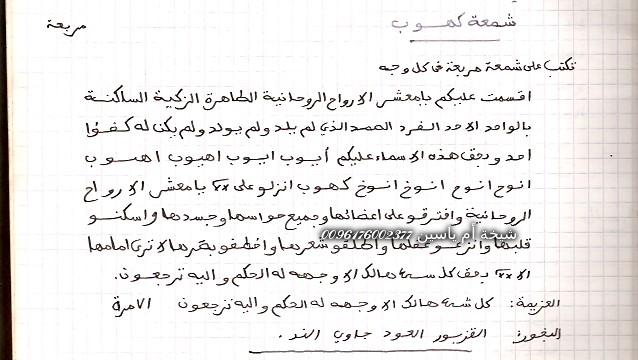 شمعة كهوب
مربعة
تكتب على شمعة مربعة في كل وجه
اقسمت عليكم يا معشر الارواح الروحانية الطاهرة الزكية الساكنة
بالواحد الاحد الفرد الصمد الذي لم يلد ولم يولد ولم يكن له كفؤا
احد وبحق هذه الاسماء عليكم أيوب ايوب اهيوب اهيوب
انوح انوح انوخ انوخ كهوب انزلو على xx يا معشر الارواح
الروحانية وافترقو على اعضائها وجميع حواسها وجسدها واسكنو
قلبها وانزعو عقلها واطلقو شعرها واخطفو بصرها لا ترى امامها
الا xx بحق كل شيء هالك الا وجهه له الحكم واليه ترجعون.
العزيمة: كل شيء هالك الا وجهه له الحكم واليه ترجعون
البخور: القزبور العود جاوي الند.
شيخة أم ياسين 0096176002377